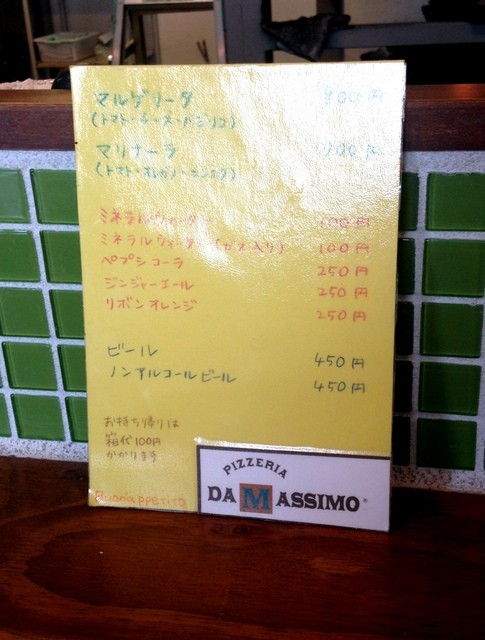 マルゲリータ 900円
(トマト・チーズ・バジリコ)
マリナーラ
(トマト・オレガノ・ニンニク)
ミネラルウォーター 100円
ミネラルウォーター (ガス入り) 100円
ペプシコーラ 250円
ジンジャーエール 250円
リボンオレンジ 250円
ビール 450円
ノンアルコールビール 450円
お持ち帰りは
箱代100円
かかります
Buonappetito
PIZZERIA
DA MASSIMO